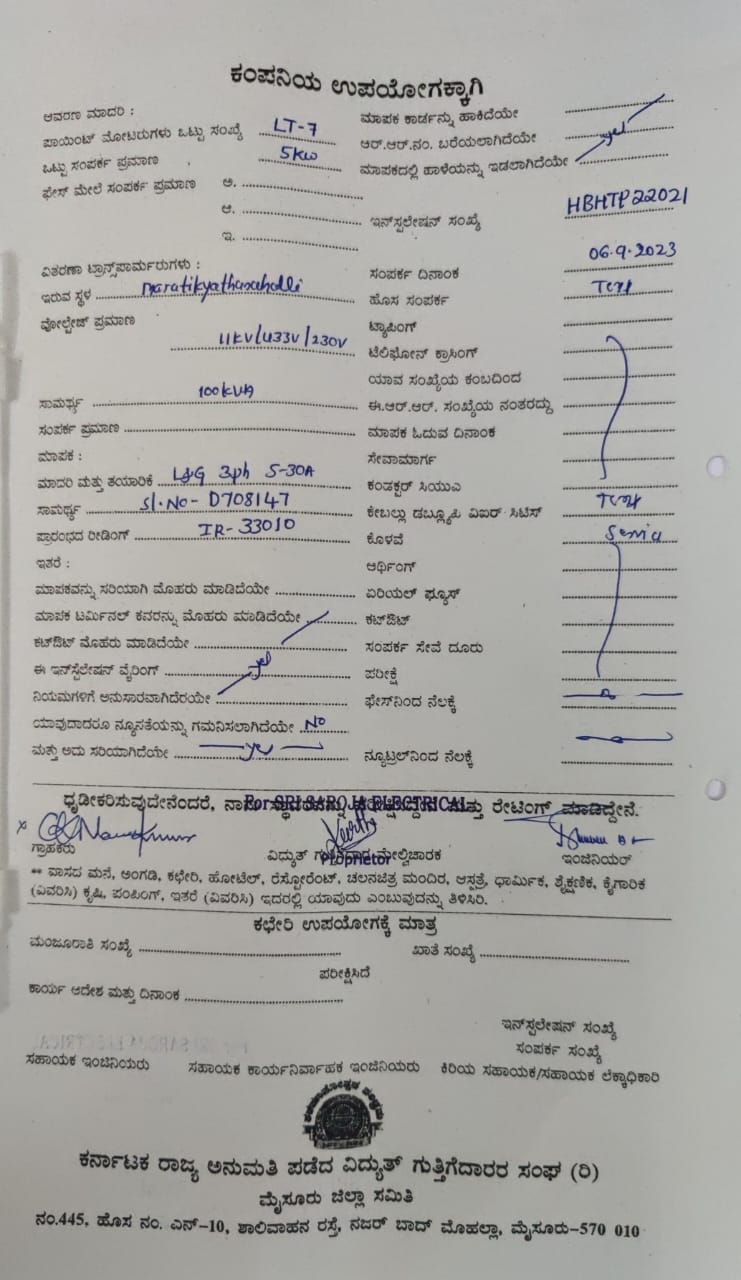 ಕಂಪನಿಯ ಉಪಯೋಗಕ್ಕಾಗಿ
ಆವರಣ ಮಾದರಿ : ಮಾಪಕ ಕಾರ್ಡನ್ನು ಹಾಕಿದೆಯೇ
ಪಾಯಿಂಟ್ ಮೋಟರುಗಳು ಒಟ್ಟು ಸಂಖ್ಯೆ LT-7 ಆರ್.ಆರ್.ನಂ. ಬರೆಯಲಾಗಿದೆಯೇ
ಒಟ್ಟು ಸಂಪರ್ಕ ಪ್ರಮಾಣ 5kw ಮಾಪಕದಲ್ಲಿ ಹಾಳೆಯನ್ನು ಇಡಲಾಗಿದೆಯೇ yes
ಫೇಸ್ ಮೇಲೆ ಸಂಪರ್ಕ ಪ್ರಮಾಣ ಅ.
ಆ. ಇನ್‌ಸ್ಪಲೇಷನ್ ಸಂಖ್ಯೆ HBHTP22021
ಇ.
ವಿತರಣಾ ಟ್ರಾನ್ಸ್‌ಪಾರ್ಮರುಗಳು : ಸಂಪರ್ಕ ದಿನಾಂಕ 06.9.2023
ಇರುವ ಸ್ಥಳ ಹೊಸ ಸಂಪರ್ಕ
ವೋಲ್ಟೇಜ್ ಪ್ರಮಾಣ 11KV/433V/230V ಟ್ಯಾಪಿಂಗ್
ಟೆಲಿಫೋನ್ ಕ್ರಾಸಿಂಗ್
ಯಾವ ಸಂಖ್ಯೆಯ ಕಂಬದಿಂದ
ಸಾಮರ್ಥ್ಯ 100KVA ಈ.ಆರ್.ಆರ್. ಸಂಖ್ಯೆಯ ನಂತರದ್ದು
ಸಂಪರ್ಕ ಪ್ರಮಾಣ ಮಾಪಕ ಓದುವ ದಿನಾಂಕ
ಮಾಪಕ : ಸೇವಾಮಾರ್ಗ
ಮಾದರಿ ಮತ್ತು ತಯಾರಿಕೆ L&G 3ph 5-30A ಕಂಡಕ್ಟರ್ ಸಿಯುಎ
ಸಾಮರ್ಥ್ಯ Sl.No- D708147 ಕೇಬಲ್ಲು ಡಬ್ಲ್ಯೂಪಿ ವಿಐರ್ ಸಿಟಿಸ್
ಪ್ರಾರಂಭದ ರೀಡಿಂಗ್ IR-33010 ಕೊಳವೆ
ಇತರೆ : ಆರ್ಥಿಂಗ್
ಮಾಪಕವನ್ನು ಸರಿಯಾಗಿ ಮೊಹರು ಮಾಡಿದೆಯೇ ಏರಿಯಲ್ ಫ್ಯೂಸ್
ಮಾಪಕ ಟರ್ಮಿನಲ್ ಕವರನ್ನು ಮೊಹರು ಮಾಡಿದೆಯೇ ಕಟ್‌ಔಟ್
ಕಟ್‌ಔಟ್ ಮೊಹರು ಮಾಡಿದೆಯೇ ಸಂಪರ್ಕ ಸೇವೆ ದೂರು
ಈ ಇನ್‌ಸ್ಟಲೇಷನ್ ವೈರಿಂಗ್ yes ಪರೀಕ್ಷೆ
ನಿಯಮಗಳಿಗೆ ಅನುಸಾರವಾಗಿದೆರಯೇ ಫೇಸ್‌ನಿಂದ ನೆಲಕ್ಕೆ
ಯಾವುದಾದರೂ ನ್ಯೂನತೆಯನ್ನು ಗಮನಿಸಲಾಗಿದೆಯೇ No
ಮತ್ತು ಅದು ಸರಿಯಾಗಿದೆಯೇ yes ನ್ಯೂಟ್ರಲ್‌ನಿಂದ ನೆಲಕ್ಕೆ
ಧೃಡೀಕರಿಸುವುದೇನೆಂದರೆ, ಮತ್ತು ರೇಟಿಂಗ್ ಮಾಡಿದ್ದೇನೆ.
For SRI SAROJA ELECTRICAL
ಗ್ರಾಹಕರು ವಿದ್ಯುತ್ ಮೇಲ್ವಿಚಾರಕ ಇಂಜಿನಿಯರ್
Proprietor
** ವಾಸದ ಮನೆ, ಅಂಗಡಿ, ಕಛೇರಿ, ಹೋಟೆಲ್, ರೆಸ್ಟೋರೆಂಟ್, ಚಲನಚಿತ್ರ ಮಂದಿರ, ಆಸ್ಪತ್ರೆ, ಧಾರ್ಮಿಕ, ಶೈಕ್ಷಣಿಕ, ಕೈಗಾರಿಕ
(ವಿವರಿಸಿ) ಕೃಷಿ, ಪಂಪಿಂಗ್, ಇತರೆ (ವಿವರಿಸಿ) ಇದರಲ್ಲಿ ಯಾವುದು ಎಂಬುವುದನ್ನು ತಿಳಿಸಿರಿ.
ಕಛೇರಿ ಉಪಯೋಗಕ್ಕೆ ಮಾತ್ರ
ಮಂಜೂರಾತಿ ಸಂಖ್ಯೆ ಖಾತೆ ಸಂಖ್ಯೆ
ಪರೀಕ್ಷಿಸಿದೆ
ಕಾರ್ಯ ಆದೇಶ ಮತ್ತು ದಿನಾಂಕ
ಇನ್‌ಸ್ಪಲೇಷನ್ ಸಂಖ್ಯೆ
ಸಂಪರ್ಕ ಸಂಖ್ಯೆ
ಸಹಾಯಕ ಇಂಜಿನಿಯರು ಸಹಾಯಕ ಕಾರ್ಯನಿರ್ವಾಹಕ ಇಂಜಿನಿಯರು ಕಿರಿಯ ಸಹಾಯಕ/ಸಹಾಯಕ ಲೆಕ್ಕಾಧಿಕಾರಿ
ಕರ್ನಾಟಕ ರಾಜ್ಯ ಅನುಮತಿ ಪಡೆದ ವಿದ್ಯುತ್ ಗುತ್ತಿಗೆದಾರರ ಸಂಘ (ರಿ)
ಮೈಸೂರು ಜಿಲ್ಲಾ ಸಮಿತಿ
ನಂ.445, ಹೊಸ ನಂ. ಎನ್-10, ಶಾಲಿವಾಹನ ರಸ್ತೆ, ನಜರ್ ಬಾದ್ ಮೊಹಲ್ಲಾ, ಮೈಸೂರು-570 010